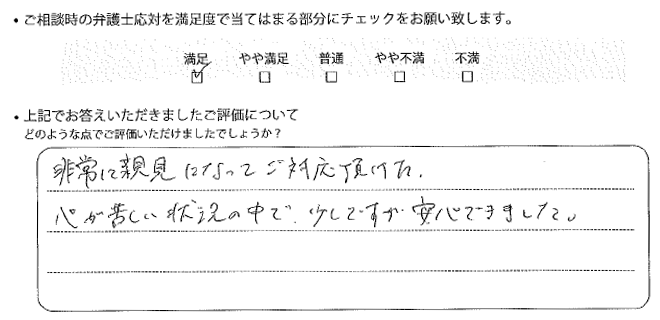 ・ご相談時の弁護士応対を満足度で当てはまる部分にチェックをお願い致します。
満足 やや満足 普通 やや不満 不満
☑ □ □ □ □
・上記でお答えいただきましたご評価について
どのような点でご評価いただけましたでしょうか？
非常に親見になってご対応頂けた.
心が苦しい状況の中で、少しですが安心できました。